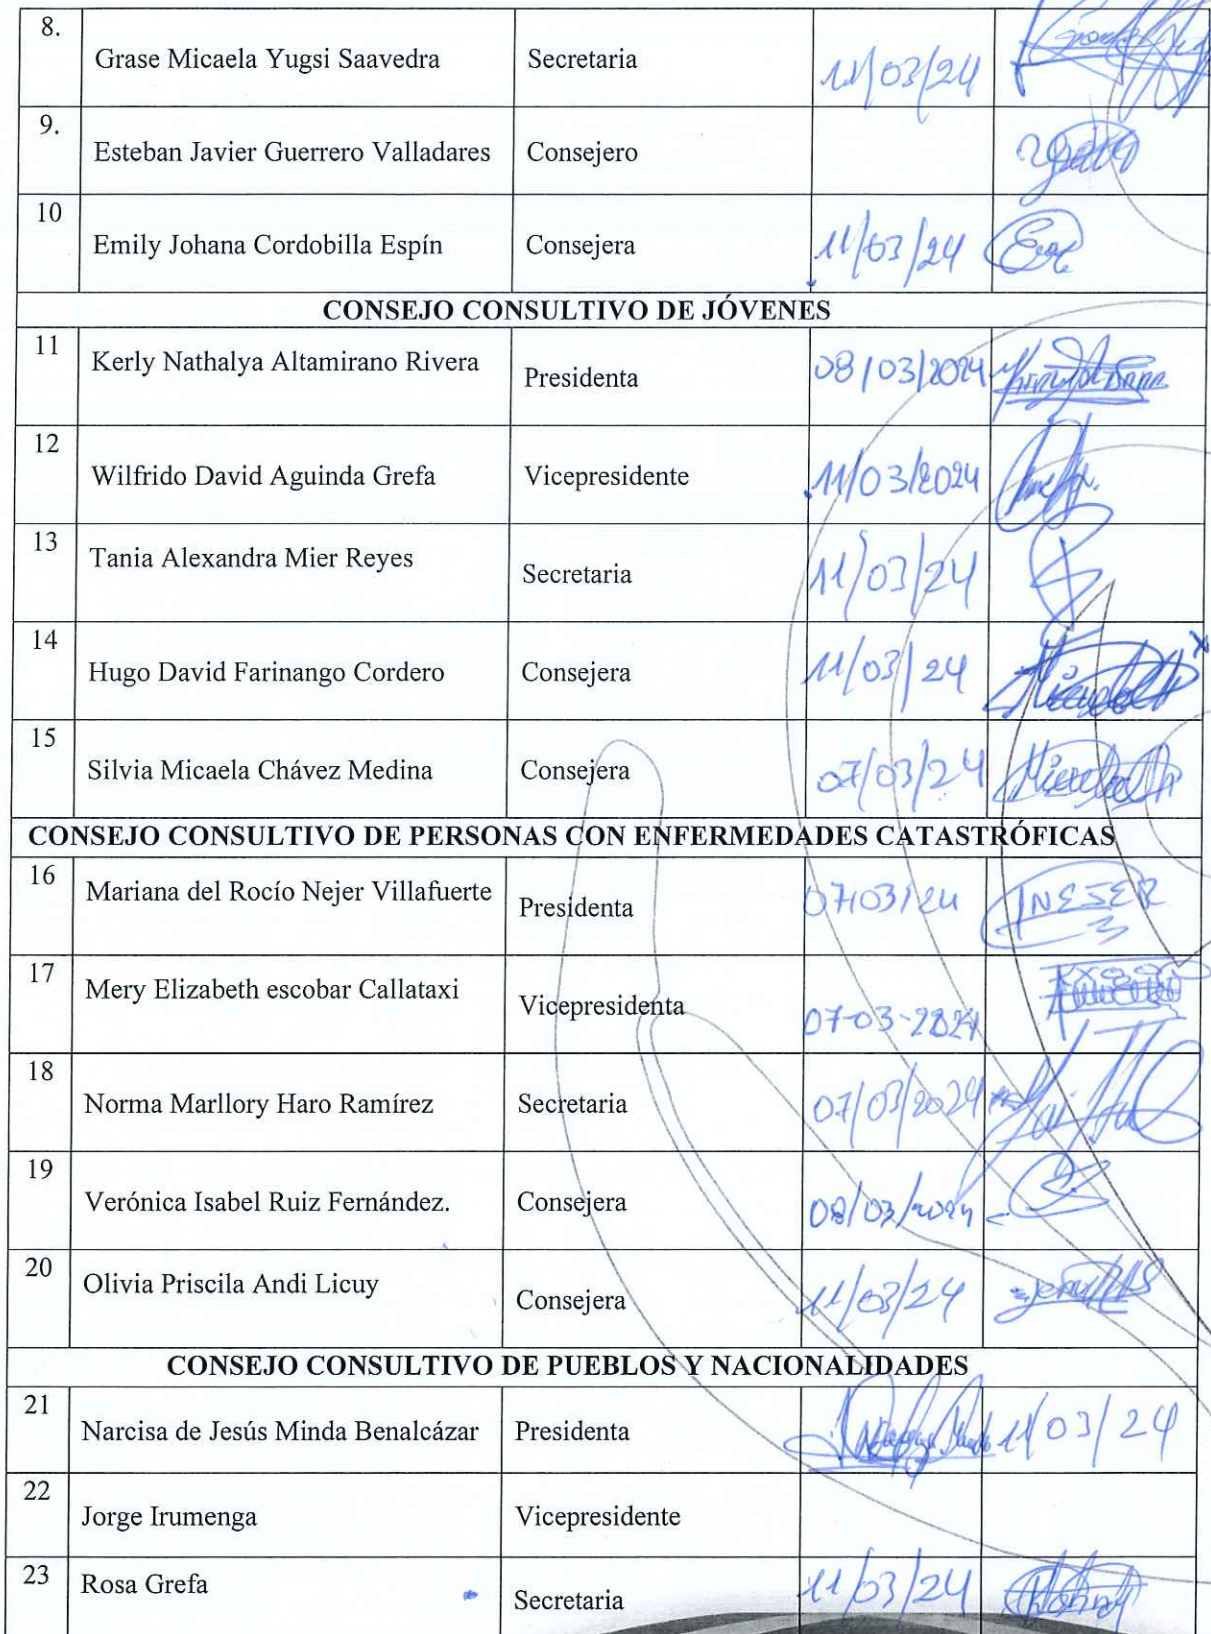 8. Grase Micaela Yugsi Saavedra Secretaria 11/03/24
9. Esteban Javier Guerrero Valladares Consejero
10 Emily Johana Cordobilla Espín Consejera 11/03/24
CONSEJO CONSULTIVO DE JÓVENES
11 Kerly Nathalya Altamirano Rivera Presidenta 08/03/2024
12 Wilfrido David Aguinda Grefa Vicepresidente 11/03/2024
13 Tania Alexandra Mier Reyes Secretaria 11/03/24
14 Hugo David Farinango Cordero Consejera 11/03/24
15 Silvia Micaela Chávez Medina Consejera 07/03/24
CONSEJO CONSULTIVO DE PERSONAS CON ENFERMEDADES CATASTRÓFICAS
16 Mariana del Rocío Nejer Villafuerte Presidenta 07/03/24
17 Mery Elizabeth escobar Callataxi Vicepresidenta 07-03-2024
18 Norma Marllory Haro Ramírez Secretaria 07/03/2024
19 Verónica Isabel Ruiz Fernández. Consejera 08/03/2024
20 Olivia Priscila Andi Licuy Consejera 11/03/24
CONSEJO CONSULTIVO DE PUEBLOS Y NACIONALIDADES
21 Narcisa de Jesús Minda Benalcázar Presidenta 11/03/24
22 Jorge Irumenga Vicepresidente
23 Rosa Grefa Secretaria 11/03/24